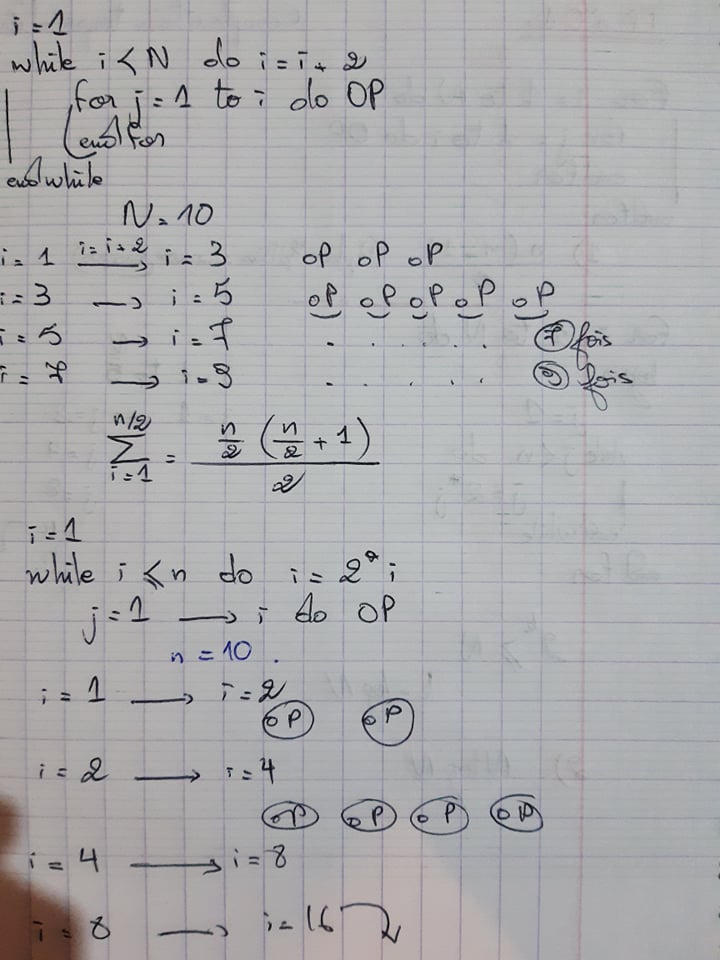 i = 1
while i < N do i = i + 2
for j = 1 to i do OP
end for
end while
N = 10
i = 1 →(i = i + 2) i = 3 OP OP OP
i = 3 → i = 5 OP OP OP OP OP
i = 5 → i = 7 . . . . . 7 fois
i = 7 → i = 9 . . . . . 9 fois
n/2 ∑ i=1 = n/2 (n/2 + 1) / 2
i = 1
while i < n do i = 2 * i
j = 1 → i do OP
n = 10 .
i = 1 → i = 2
OP OP
i = 2 → i = 4
OP OP OP OP
i = 4 → i = 8
i = 8 → i = 16